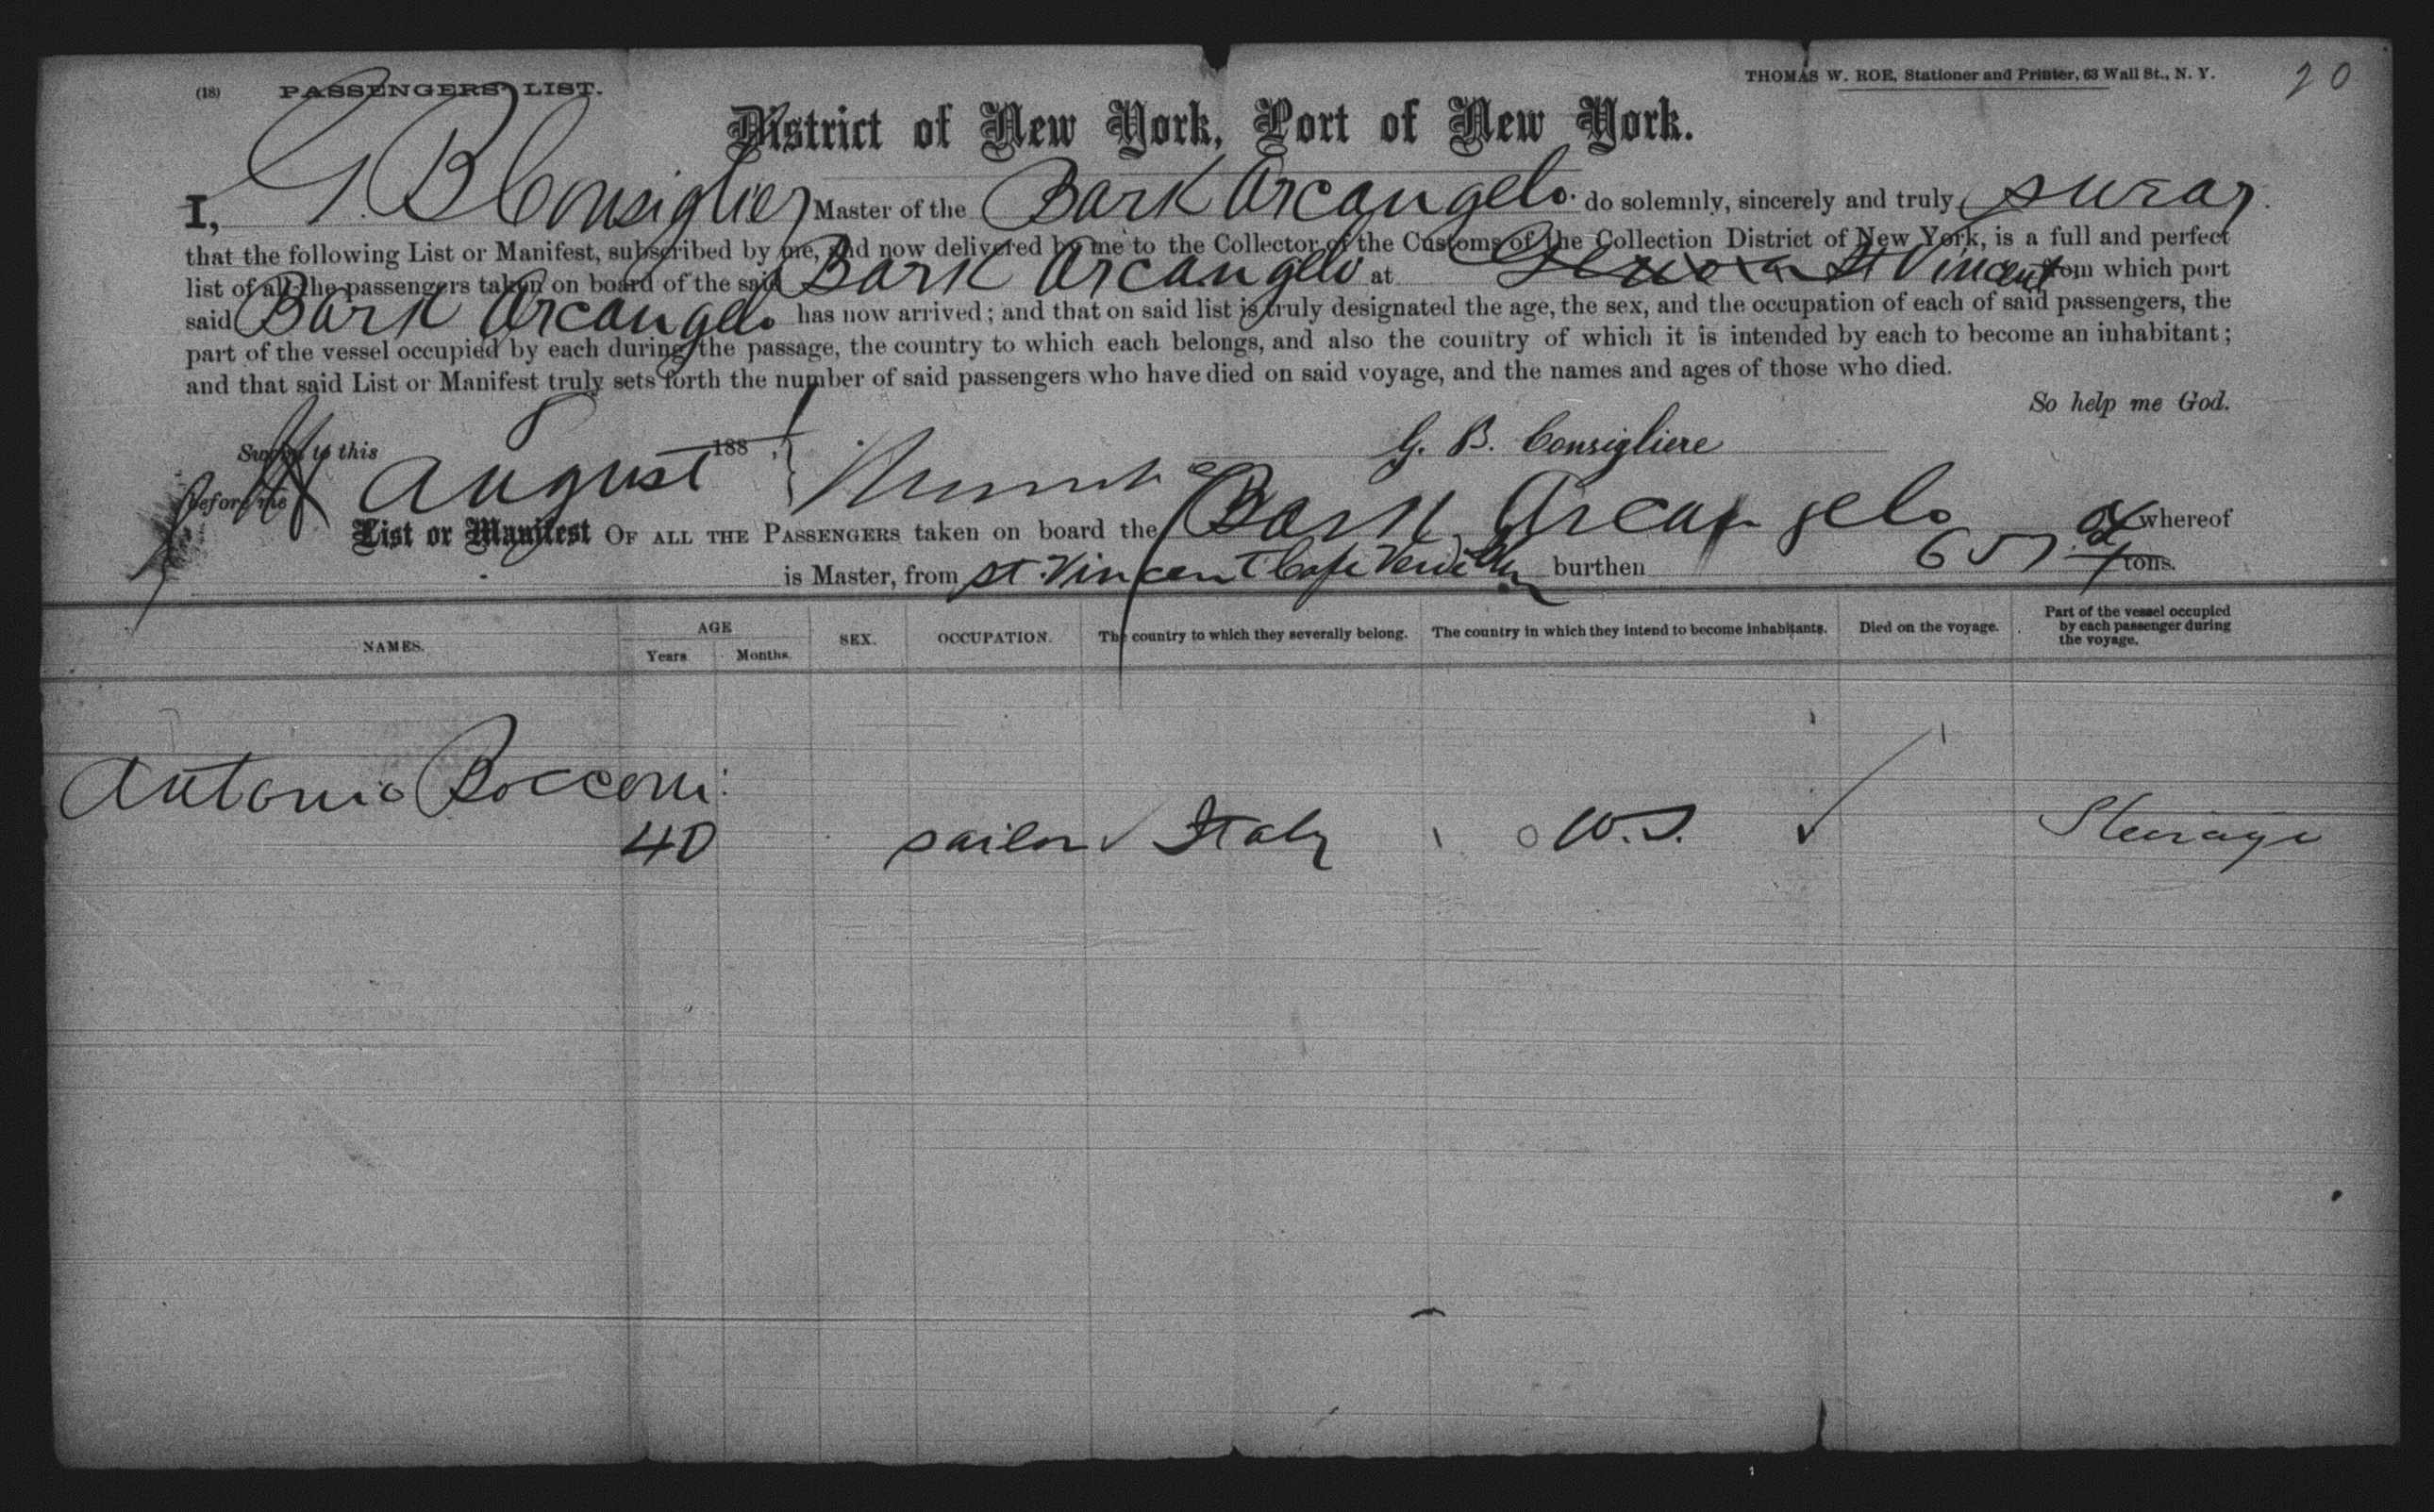 (18) PASSENGERS' LIST.
THOMAS W. ROE, Stationer and Printer, 63 Wall St., N. Y.
20
District of New York, Port of New York.
I, G B Consiglier Master of the Bark Arcangelo. do solemnly, sincerely and truly swear.
that the following List or Manifest, subscribed by me, and now delivered by me to the Collector of the Customs of the Collection District of New York, is a full and perfect
list of all the passengers taken on board of the said Bark Arcangelo at Genova St Vincent from which port
said Bark Arcangelo has now arrived; and that on said list is truly designated the age, the sex, and the occupation of each of said passengers, the
part of the vessel occupied by each during the passage, the country to which each belongs, and also the country of which it is intended by each to become an inhabitant;
and that said List or Manifest truly sets forth the number of said passengers who have died on said voyage, and the names and ages of those who died.
So help me God.
Sworn to this 188 ,
G. B. Consigliere
before me August
List or Manifest OF ALL THE PASSENGERS taken on board the Bark Arcangelo whereof
is Master, from St. Vincent Cape Verde burthen 657 tons.
NAMES. AGE Years Months. SEX. OCCUPATION. The country to which they severally belong. The country in which they intend to become inhabitants. Died on the voyage. Part of the vessel occupied by each passenger during the voyage.
Antonio Bocconi
40 sailor Italy Steerage